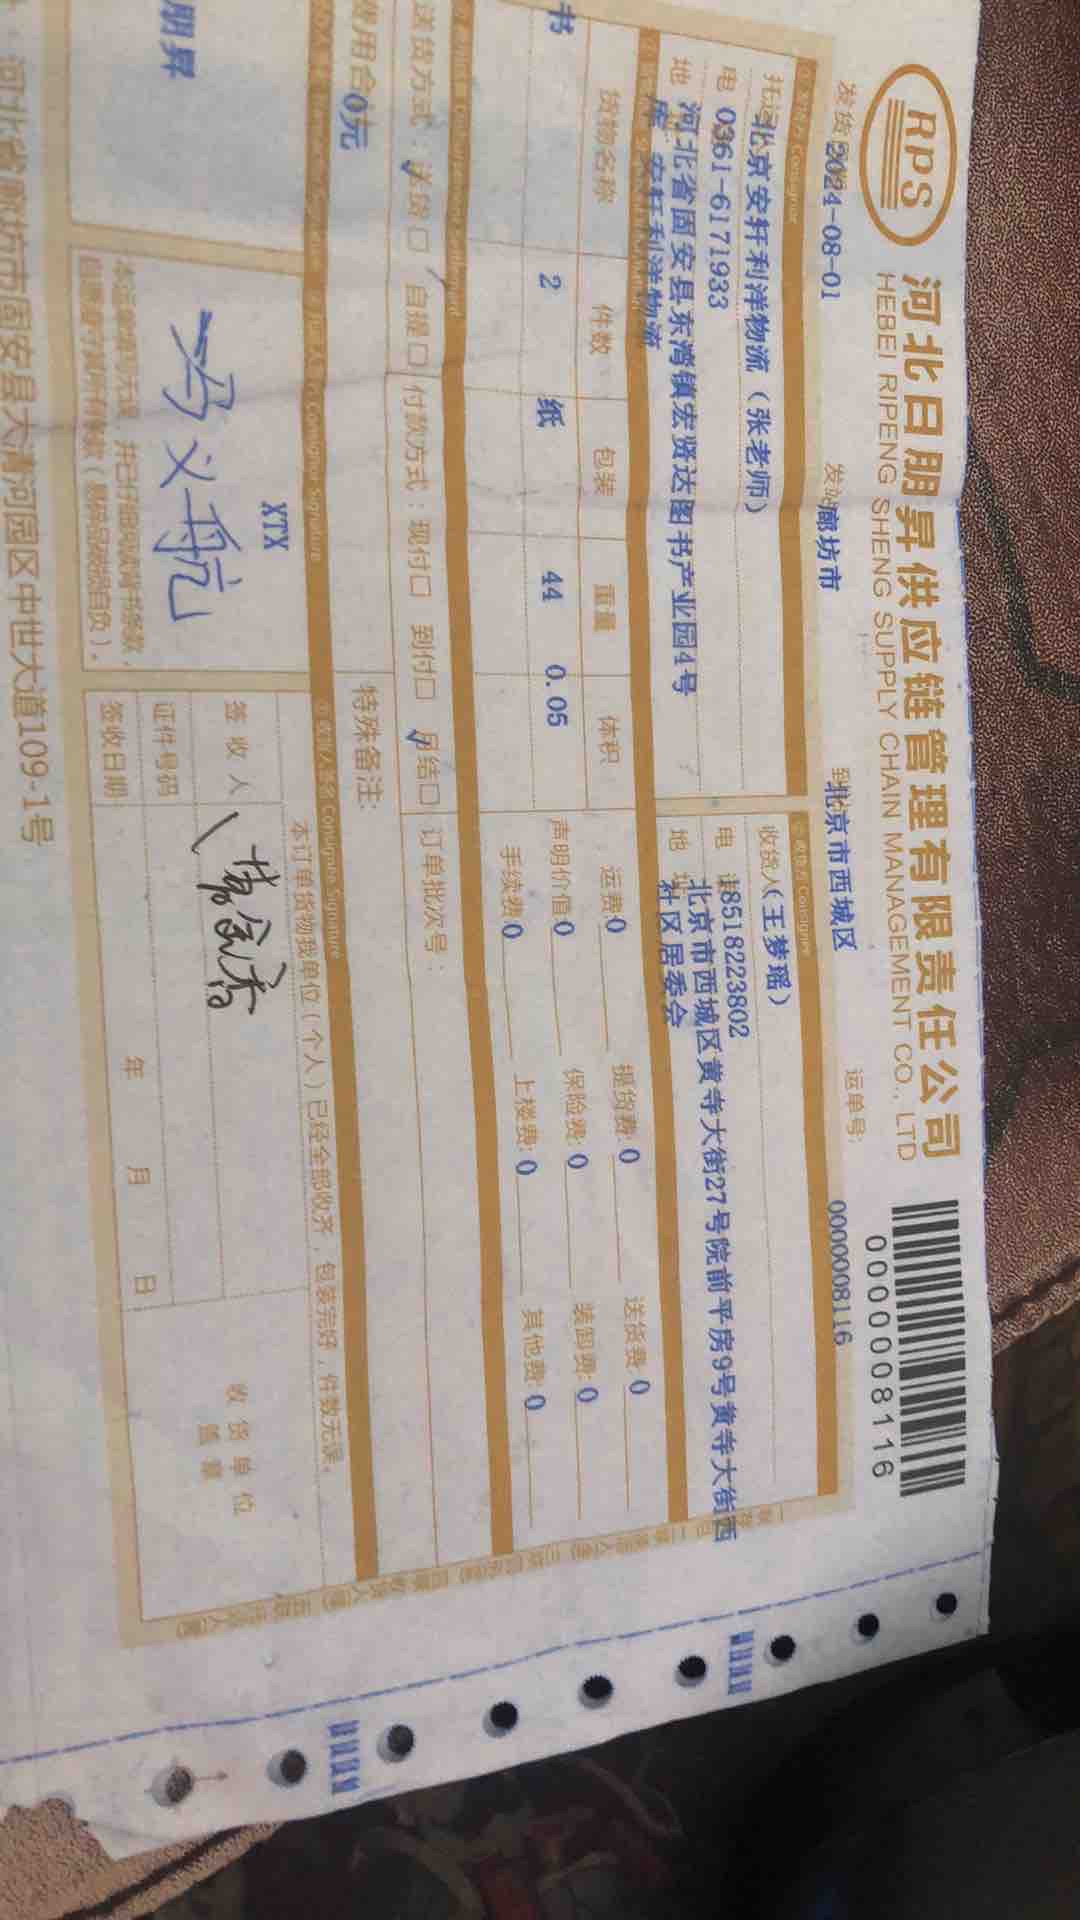 RPS
河北日朋昇供应链管理有限责任公司
HEBEI RIPENG SHENG SUPPLY CHAIN MANAGEMENT CO., LTD
0000008116
发货 2024-08-01 发站 廊坊市 到 北京市西城区 运单号: 0000008116
Consignor
托运 北京安轩利洋物流（张老师）
电 0361-6171933
地 河北省固安县东湾镇宏贤达图书产业园4号
库 安轩利洋物流
Consignee
收货人 （王梦瑶）
电 18518223802
地址 北京市西城区黄寺大街27号院前平房9号黄寺大街西
社区居委会
货物名称 件数 包装 重量 体积
书 2 纸 44 0.05
运费:0 提货费:0 送货费:0
声明价值:0 保险费:0 装卸费:0
手续费:0 上楼费:0 其他费:0
送货方式：送货 自提 付款方式：现付 到付 月结 订单批次号：
费用合 0元 特殊备注:
朋昇
Consignor Signature
XTX
Consignee Signature
本订单货物我单位（个人）已经全部收齐，包装完好，件数无误。
签收人
证件号码
签收日期 年 月 日
收货单位
盖章
河北省廊坊市固安县大清河园区中世大道109-1号